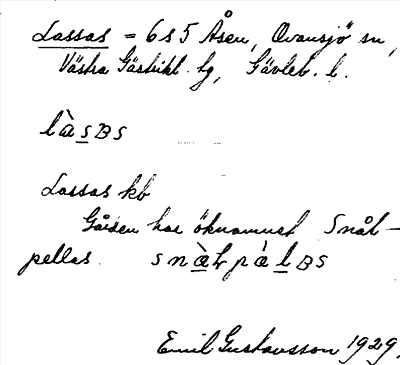 Lassas = 6s5 Åsen, Ovansjö sn,
Västra Gästrikl. tg, Gävleb. l.
làsBs
Lassas kb
Gården har öknamnet Snål-
pellas. snàlpàlBs
Emil Gustavsson 1929.